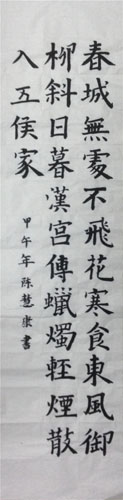 春城無處不飛花寒食東風御
柳斜日暮漢宮傳蠟燭輕煙散
入五侯家
甲午年陈慧康書